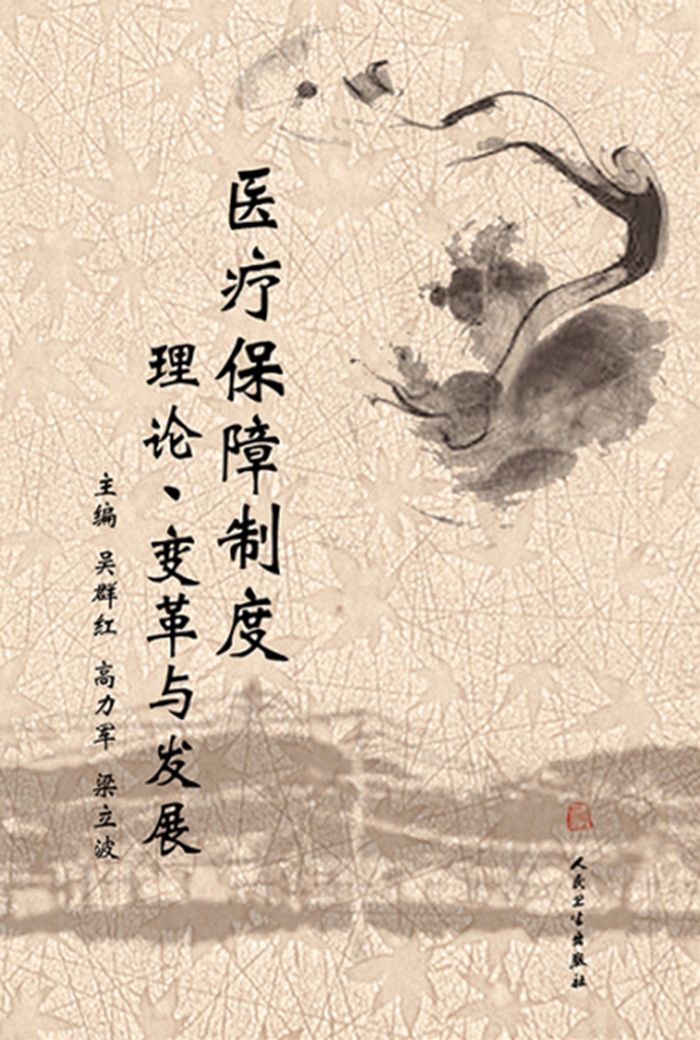 医疗保障制度
理论、变革与发展
主编 吴群红 高力军 梁立波
人民卫生出版社